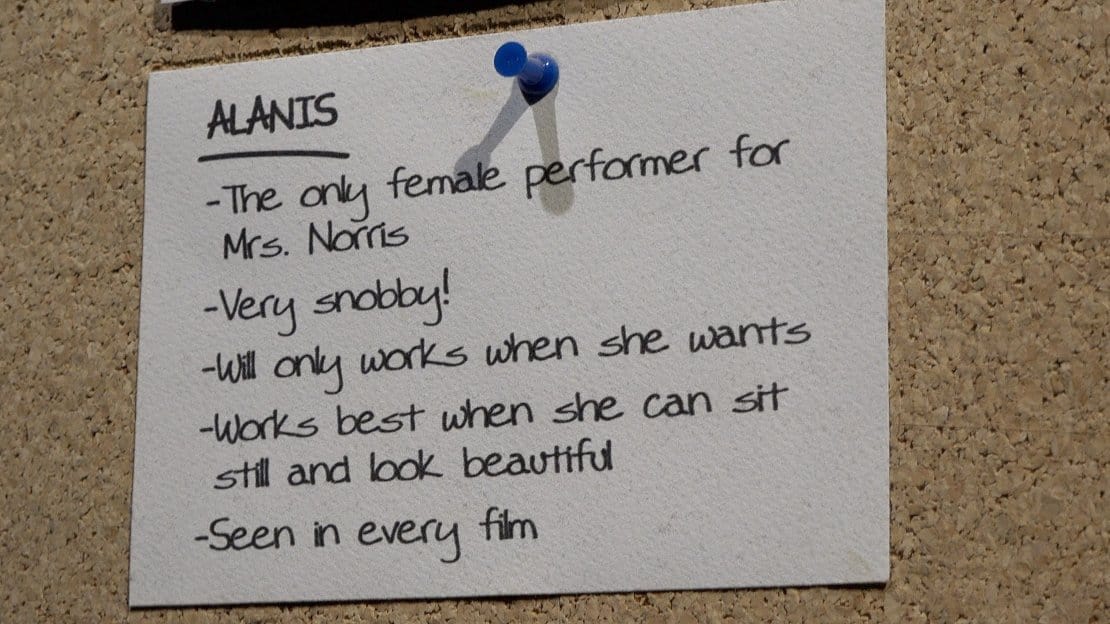 ALANIS
-The only female performer for
Mrs. Norris
-Very snobby!
-Will only works when she wants
-Works best when she can sit
still and look beautiful
-Seen in every film